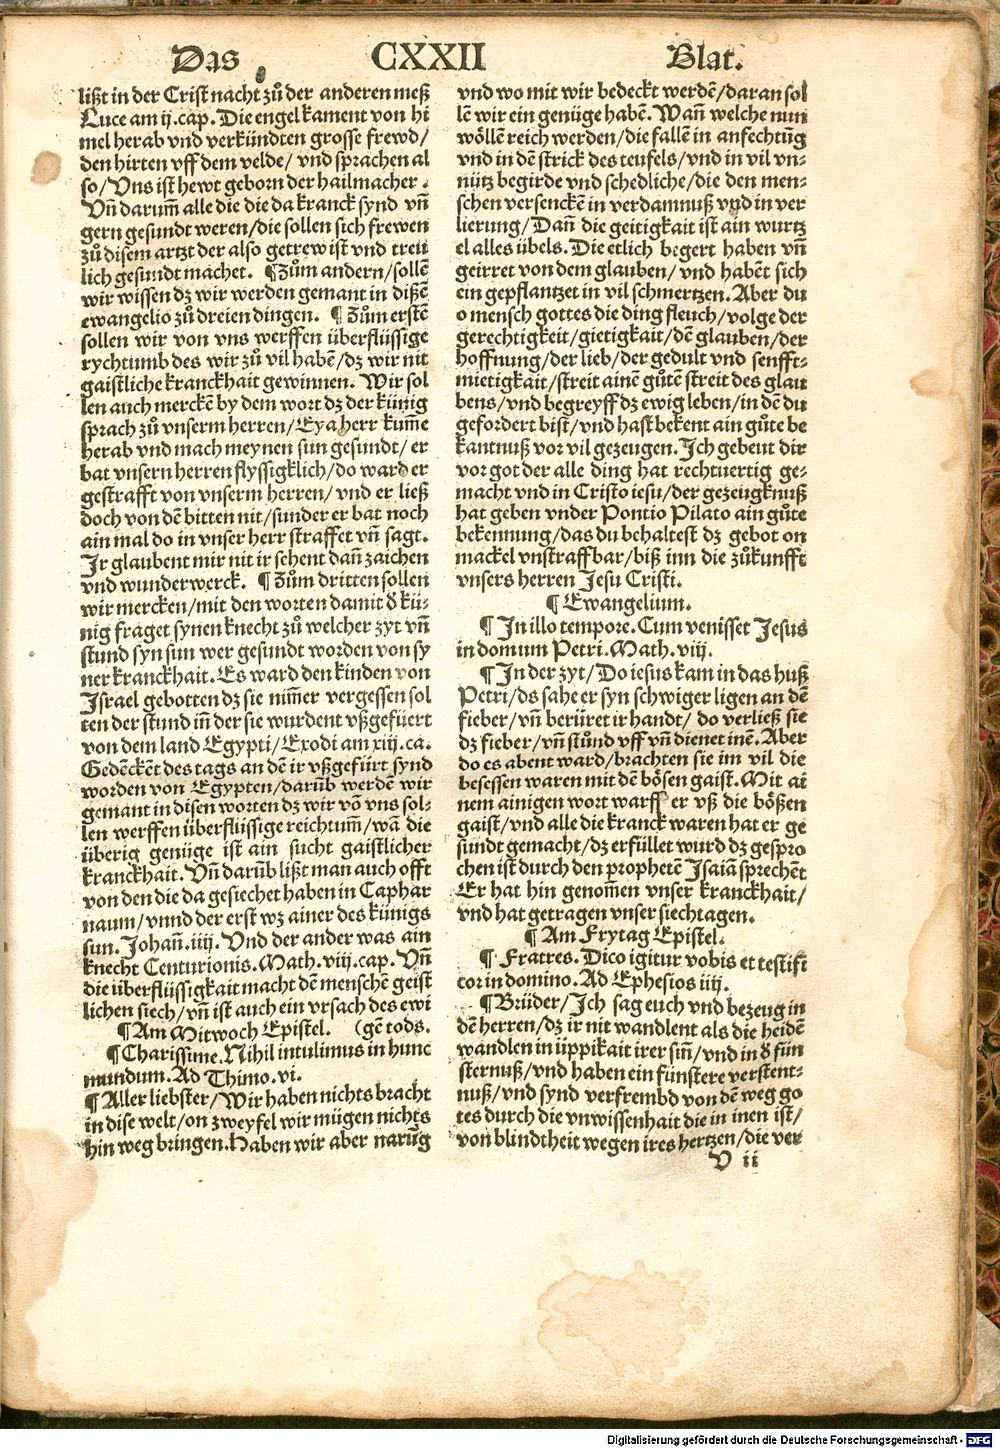 Das CXXII Blat.
lißt in der Crist nacht zů der anderen meß
Luce am ij. cap. Die engel kament von hi
mel herab vnd verkündten grosse frewd/
den hirten vff dem velde/ vnd sprachen al
so/ Vns ist hewt geborn der hailmacher.
Vñ darum̃ alle die die da kranck synd vñ
gern gesundt weren/die sollen sich frewen
zů disem artzt der also getrew ist vnd treu
lich gesundt machet. ¶ Zům andern/sollẽ
wir wissen dz wir werden gemant in dißẽ
ewangelio zů dreien dingen. ¶ Zům erstẽ
sollen wir von vns werffen überflüssige
rychtumb des wir zů vil habẽ/dz wir nit
gaistliche kranckhait gewinnen. Wir sol
len auch merckẽ by dem wort dz der künig
sprach zů vnserm herren/ Eya herr kum̃e
herab vnd mach meynen sun gesundt/ er
bat vnsern herren flyssigklich/do ward er
gestrafft von vnserm herren/ vnd er ließ
doch von dẽ bitten nit/sunder er bat noch
ain mal do in vnser herr straffet vñ sagt.
Ir glaubent mir nit ir sehent dañ zaichen
vnd wunderwerck. ¶ Zům dritten sollen
wir mercken/mit den worten damit ð kü⸗
nig fraget synen knecht zů welcher zyt vñ
stund syn sun wer gesundt worden von sy
ner kranckhait. Es ward den kinden von
Israel gebotten dz sie nim̃er vergessen sol
ten der stund in̄ der sie wurdent vßgefüert
von dem land Egypti/ Exodi am xiij. ca.
Gedẽckẽt des tags an dẽ ir vßgefürt synd
worden von Egypten/darũb werdẽ wir
gemant in disen worten dz wir võ vns sol⸗
len werffen überflüssige reichtum̃/wã die
überig genüge ist ain sucht gaistlicher
kranckhait. Vñ darũb lißt man auch offt
von den die da gesiechet haben in Caphar
naum/ vnnd der erst wz ainer des künigs
sun. Johañ. iiij. Vnd der ander was ain
knecht Centurionis. Math. viij. cap. Vñ
die überflüssigkait macht dẽ menschẽ geist
lichen siech/ vñ ist auch ein vrsach des ewi
¶ Am Mitwoch Epistel. (gẽ tods.
¶ Charissime. Nihil intulimus in hunc
mundum. Ad Thimo. vi.
¶ Aller liebster/ Wir haben nichts bracht
in dise welt/on zweyfel wir mügen nichts
hin weg bringen. Haben wir aber narũg
vnd wo mit wir bedeckt werdẽ/daran sol
lẽ wir ein genüge habẽ. Wañ welche nun
wöllẽ reich werden/die fallẽ in anfechtũg
vnd in dẽ strick des teufels/vnd in vil vn⸗
nütz begirde vnd schedliche/die den men⸗
schen versenckẽ in verdamnuß vnd in ver
lierung/ Dañ die geitigkait ist ain wurtz
el alles übels. Die etlich begert haben vñ
geirret von dem glauben/ vnd habẽt sich
ein gepflantzet in vil schmertzen. Aber du
o mensch gottes die ding fleuch/ volge der
gerechtigkeit/gietigkait/dẽ glauben/der
hoffnung/der lieb/der gedult vnd senfft⸗
mietigkait/streit ainẽ gůtẽ streit des glau
bens/vnd begreyff dz ewig leben/in dẽ du
gefordert bist/vnd hast bekent ain gůte be
kantnuß vor vil gezeugen. Ich gebeut dir
vor got der alle ding hat rechtuertig ge⸗
macht vnd in Cristo iesu/der gezeugknuß
hat geben vnder Pontio Pilato ain gůte
bekennung/das du behaltest dz gebot on
mackel vnstraffbar/biß inn die zůkunfft
vnsers herren Jesu Cristi.
¶ Ewangelium.
¶ In illo tempore. Cum venisset Jesus
in domum Petri. Math. viij.
¶ In der zyt/ Do iesus kam in das huß
Petri/ds sahe er syn schwiger ligen an dẽ
fieber/vñ berüret ir handt/ do verließ sie
dz fieber/vñ stůnd vff vñ dienet inẽ. Aber
do es abent ward/brachten sie im vil die
besessen waren mit dẽ bösen gaist. Mit ai
nem ainigen wort warff er vß die bößen
gaist/vnd alle die kranck waren hat er ge
sundt gemacht/dz erfüllet wurd dz gespro
chen ist durch den prophetẽ Isaiã sprechẽt
Er hat hin genom̃en vnser kranckhait/
vnd hat getragen vnser siechtagen.
¶ Am Frytag Epistel.
¶ Fratres. Dico igitur vobis et testifi
cor in domino. Ad Ephesios iiij.
¶ Brüder/ Ich sag euch vnd bezeug in
dẽ herren/dz ir nit wandlent als die heidẽ
wandlen in üppikait irer sin̄/vnd in ð fün
sternuß/vnd haben ein fünstere verstent⸗
nuß/vnd synd verfrembd von dẽ weg go
tes durch die vnwissenhait die in inen ist/
von blindtheit wegen ires hertzen/die ver
V ii
Digitalisierung gefördert durch die Deutsche Forschungsgemeinschaft - DFG